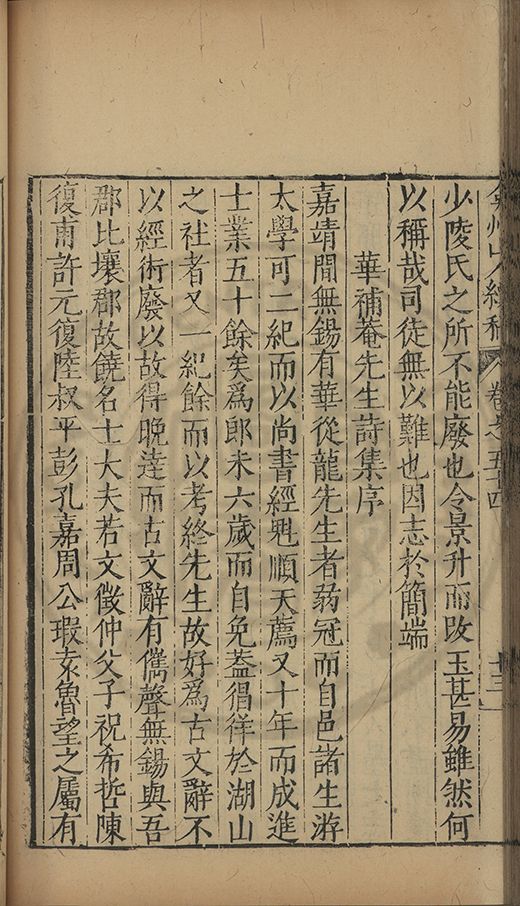 弇州山人續稿 卷之五十四 十三
少陵氏之所不能廢也令景升而改玉甚易雖然何
以稱哉司徒無以難也因志於簡端
華補菴先生詩集序
嘉靖間無錫有華從龍先生者弱冠而自邑諸生游
太學可二紀而以尚書經魁順天薦又十年而成進
士業五十餘矣為郎未六歲而自免蓋徜徉於湖山
之社者又一紀餘而以考終先生故好為古文辭不
以經術廢以故得晚達而古文辭有儁聲無錫與吾
郡比壤郡故饒名士大夫若文徵仲父子祝希哲陳
復甫許元復陸叔平彭孔嘉周公瑕袁魯望之屬有